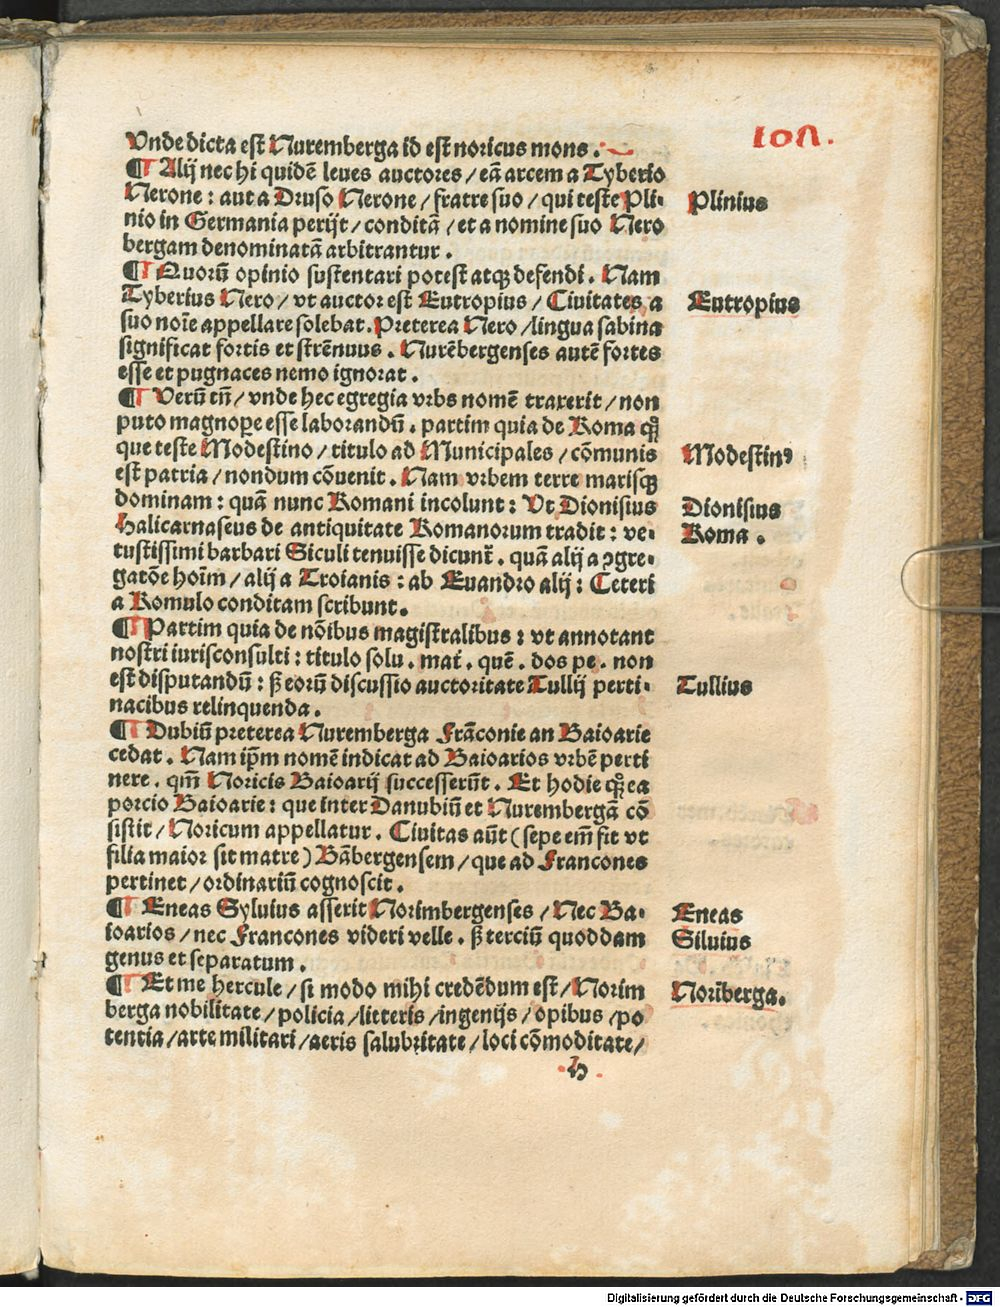 107.
Vnde dicta est Nuremberga id est noricus mons.
¶ Alij nec hi quidē leues auctores / eā arcem a Tyberio
Nerone: aut a Druso Nerone / fratre suo / qui teste Pli-
nio in Germania perijt / conditā / et a nomine suo Nero
bergam denominatā arbitrantur.
¶ Quorū opinio sustentari potest atqꝫ defendi. Nam
Tyberius Nero / vt auctor est Eutropius / Ciuitates a
suo noīe appellare solebat. Preterea Nero / lingua sabina
significat fortis et strēnuus. Nurēbergenses autē fortes
esse et pugnaces nemo ignorat.
¶ Verū tn̄ / vnde hec egregia vrbs nomē traxerit / non
puto magnoꝑe esse laborandū. partim quia de Roma qꝫ
que teste Modestino / titulo ad Municipales / cōmunis
est patria / nondum cōuenit. Nam vrbem terre marisqꝫ
dominam: quā nunc Romani incolunt: Vt Dionisius
Halicarnaseus de antiquitate Romanorum tradit: ve-
tustissimi barbari Siculi tenuisse dicunt̄. quā alij a ꝯgre-
gatōe hoīm / alij a Troianis: ab Euandro alij: Ceteri
a Romulo conditam scribunt.
¶ Partim quia de nōibus magistralibus: vt annotant
nostri iurisconsulti: titulo solu. mat̄. quē. dos pe. non
est disputandū: ꝭ eorū discussio auctoritate Tullij perti-
nacibus relinquenda.
¶ Dubiū preterea Nuremberga Frāconie an Baioarie
cedat. Nam ip̄m nomē indicat ad Baioarios vrbē perti
nere. qm̄ Noricis Baioarij successerūt. Et hodie qꝫ ea
porcio Baioarie: que inter Danubiū et Nurembergā cō
sistit / Noricum appellatur. Ciuitas aūt (sepe em̄ fit vt
filia maior sit matre) Bābergensem / que ad Francones
pertinet / ordinariū cognoscit.
¶ Eneas Syluius asserit Norimbergenses / Nec Ba-
ioarios / nec Francones videri velle. ꝭ terciū quoddam
genus et separatum.
¶ Et me hercule / si modo mihi credēdum est / Norim
berga nobilitate / policia / litteris / ingenijs / opibus / po
tentia / arte militari / aeris salubritate / loci cōmoditate /
.h.
Plinius
Eutropius
Modestinꝰ
Dionisius
Roma.
Tullius
Eneas
Siluius
Norīberga.
Digitalisierung gefördert durch die Deutsche Forschungsgemeinschaft - DFG